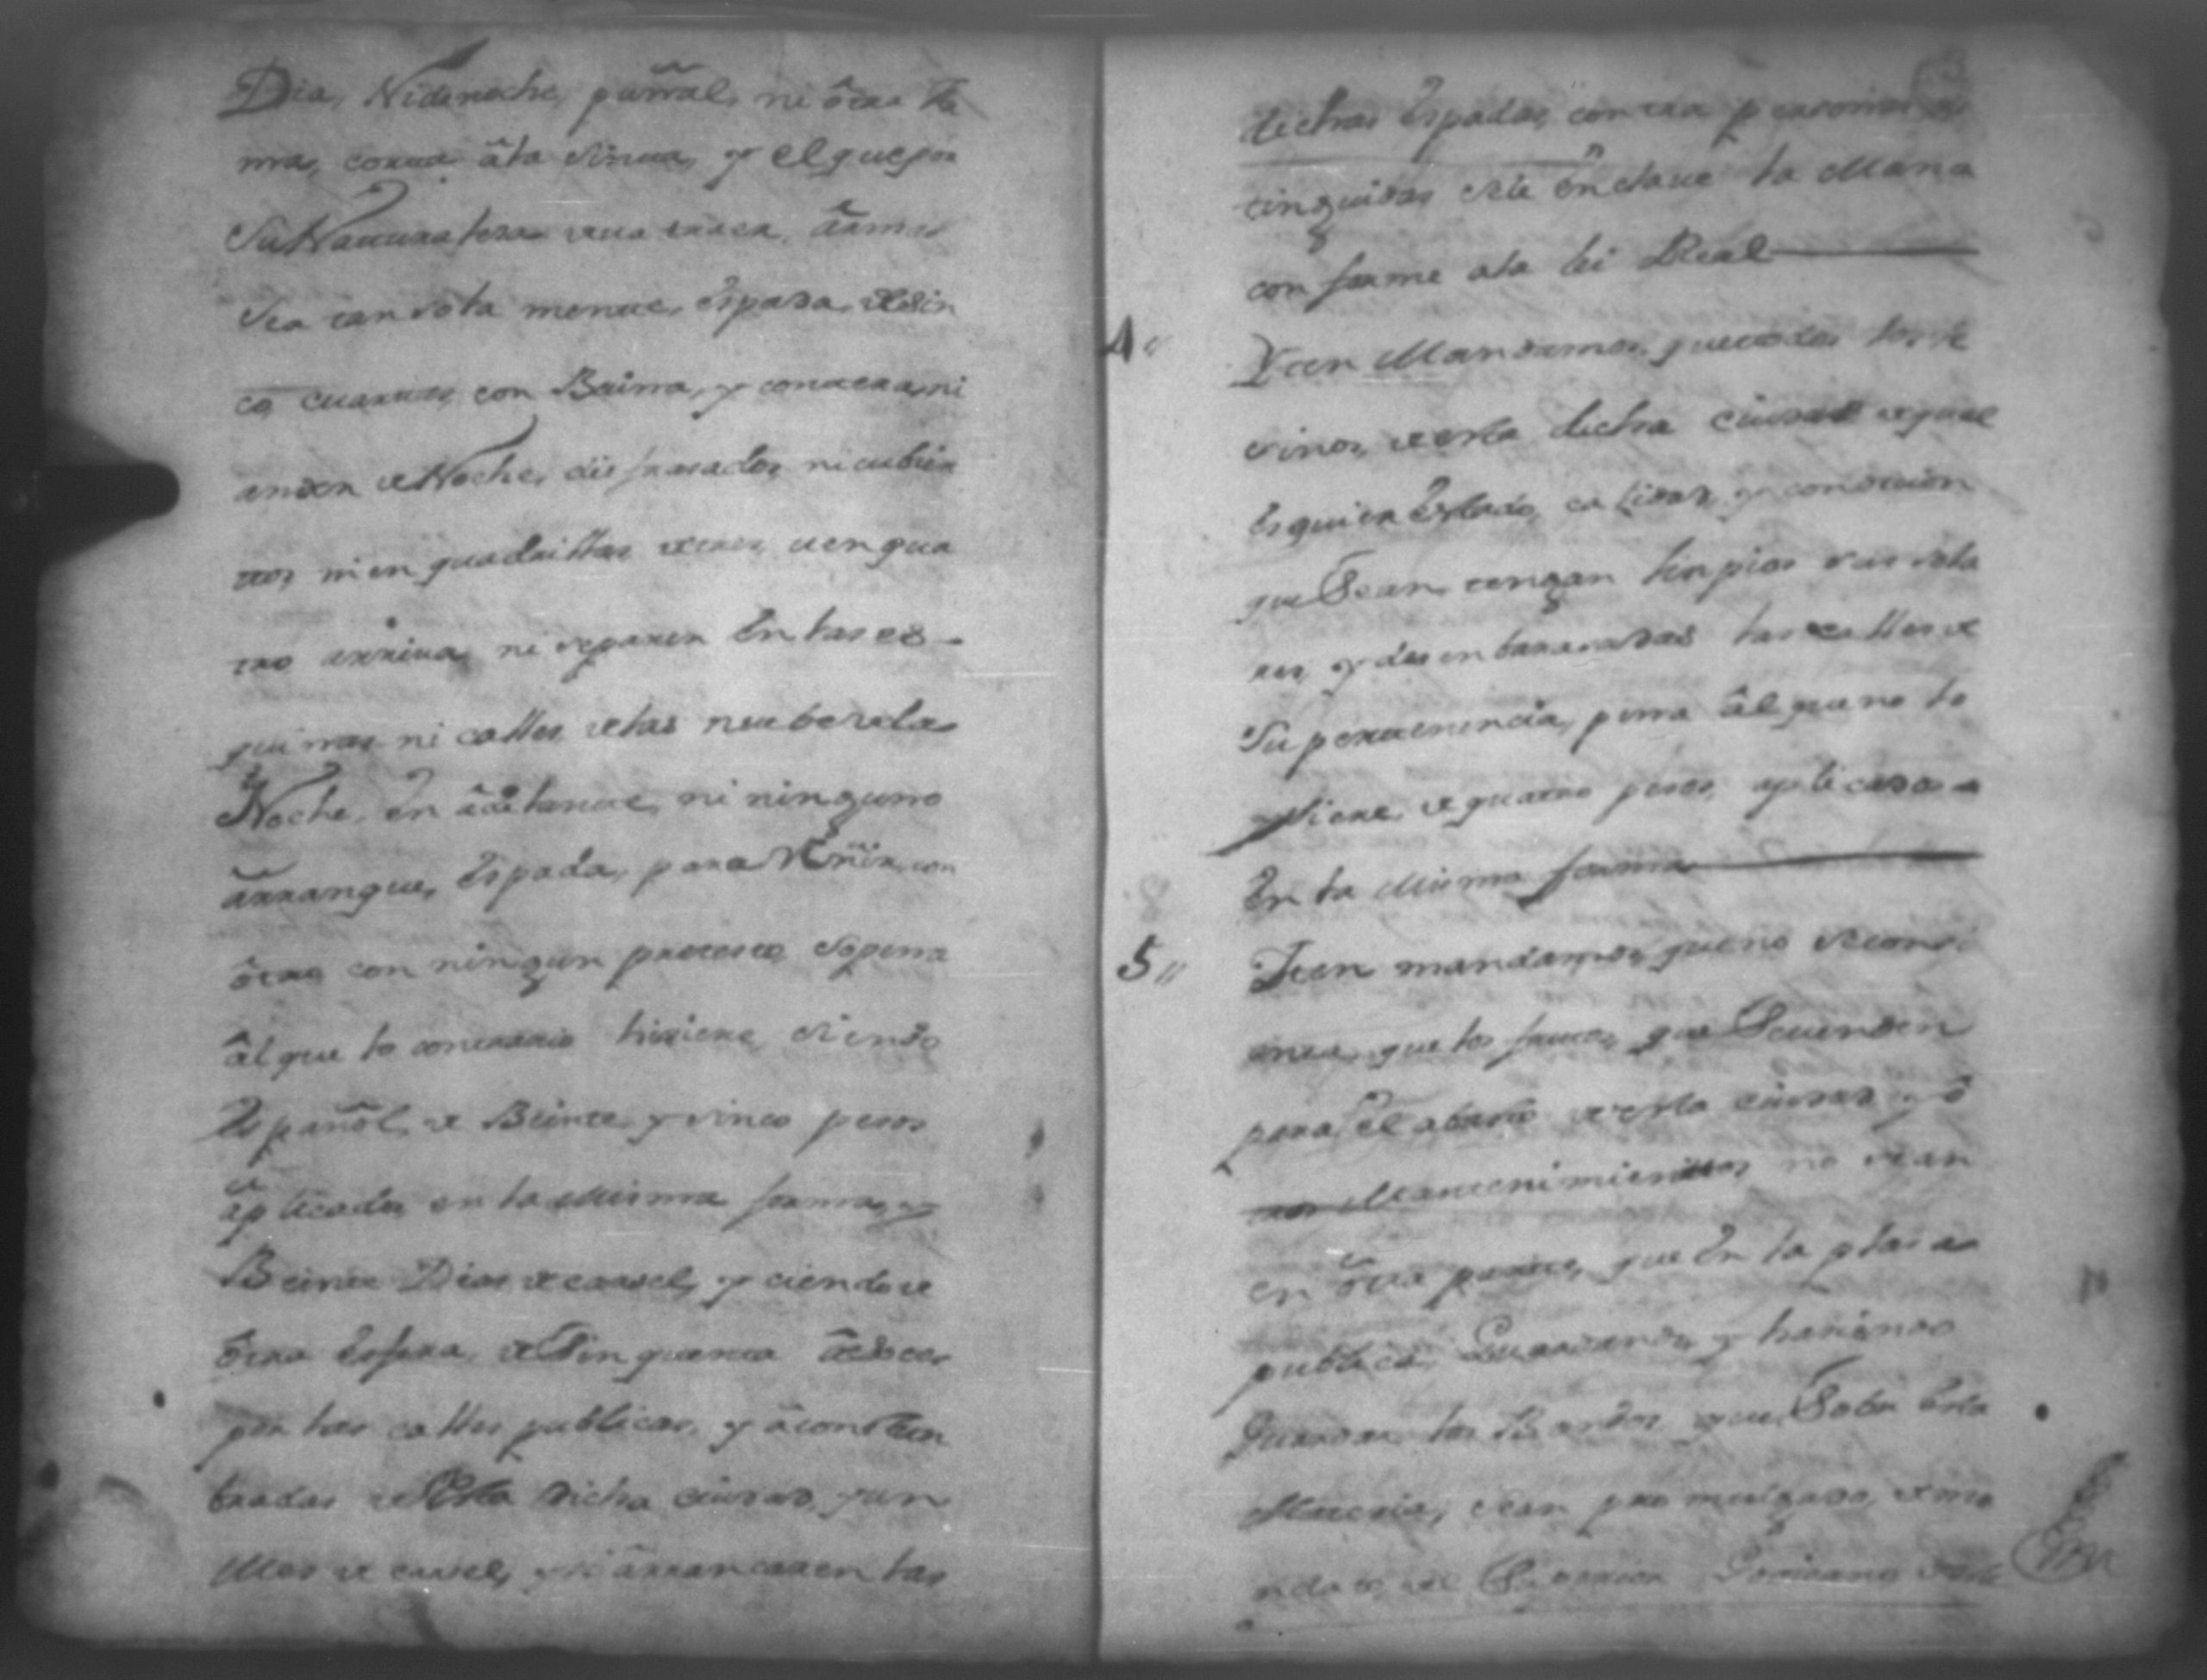 Dia, Nidenoche, puñal, ni ôtra Ar
ma, corta âla sinta, y el que por
Su Naturalesa deva traer, ârmas
sea tan sola mente, espada, de sin
co cuartas con Baina, y contera, ni
anden de Noche, disfrasados, ni cubier
tos, ni en quadrillas detres, uen qua
tro arriva, ni separen En las es-
quinas ni calles delas nueve dela
Noche, En âdelante, ni ninguno
ârranque, Espada, para Reñir, con
ôtro con ningun pretexto, Sopena
âl que lo contrario hiziere, siendo
Español, de Beinte y sinco pesos
âplicados, en la Misma forma, y
Beinte Dias de carsel, y ciendo de
ôtra Esfera, de Sinquenta âsotes
por las calles publicas, y
de Esta dicha ciudad, y un
Mes de carsel, y si ârrancaren las
dichas Espadas, contra personas
tinguidas se le Enclave la Mano
conforme ala lei Real
4"
Yten Mandamos, que todos los ve
sinos, de esta dicha ciudad de qual
esquier Estado, calidad, y condicion
que Sean, tengan limpios sus sola
res, y desenbarasadas las calles de
Su pertenencia, pena âl que no lo
hiciere, de quatro pesos, aplicados
En la Misma forma
5"
Yten mandamos, que no se consi
enta, que los frutos, que Sevenden
para el abasto de esta ciudad y ô
tros Mantenimientos no sean
en ôtra parte, que En la plasa
publica, Guardando, y hasiendo
Guardar los Bandos que Sobre Esta
Materia, sean promulgado, demo